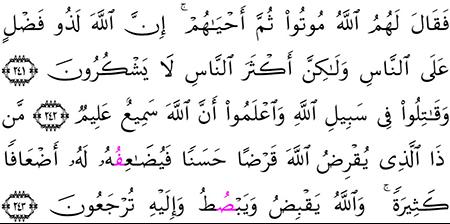 فَقَالَ لَهُمُ ٱللَّهُ مُوتُوا۟ ثُمَّ أَحْيَـٰهُمْ ۚ إِنَّ ٱللَّهَ لَذُو فَضْلٍ
عَلَى ٱلنَّاسِ وَلَـٰكِنَّ أَكْثَرَ ٱلنَّاسِ لَا يَشْكُرُونَ ۝٢٤١
وَقَـٰتِلُوا۟ فِى سَبِيلِ ٱللَّهِ وَٱعْلَمُوٓا۟ أَنَّ ٱللَّهَ سَمِيعٌ عَلِيمٌ ۝٢٤٢ مَّن
ذَا ٱلَّذِى يُقْرِضُ ٱللَّهَ قَرْضًا حَسَنًا فَيُضَـٰعِفُهُۥ لَهُۥٓ أَضْعَافًا
كَثِيرَةً ۚ وَٱللَّهُ يَقْبِضُ وَيَبْصُطُ وَإِلَيْهِ تُرْجَعُونَ ۝٢٤٣